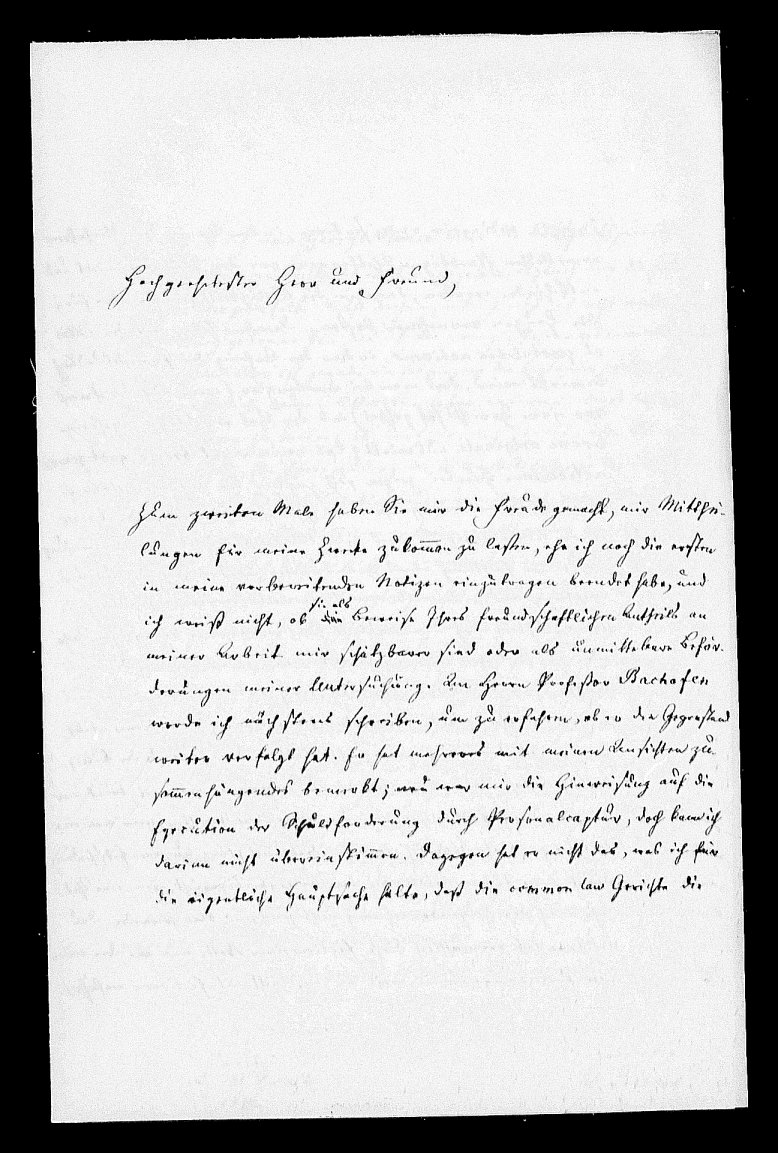 Hochgeehrtester Herr und Freund,
Zum zweiten Male haben Sie mir die Freude gemacht, mir Mitthei-
lungen für meine Zwecke zukommen zu lassen, ehe ich noch die ersten
in meine vorbereitenden Notizen einzutragen beendet habe, und
ich weiß nicht, ob sie als Beweise Ihres freundschaftlichen Antheils an
meiner Arbeit mir schätzbarer sind oder als unmittelbare Beför-
derungen meiner Untersuchung. An Herrn Professor Bachofen
werde ich nächstens schreiben, um zu erfahren, ob er den Gegenstand
weiter verfolgt hat. Er hat mehreres mit meinen Ansichten zu-
sammenhängendes bemerkt; neu war mir die Hinweisung auf die
Execution der Schuldforderung durch Personalcaptur, doch kann ich
darinn nicht übereinstimmen. Dagegen hat er nicht das, was ich für
die eigentliche Hauptsache halte, daß die common law Gerichte die